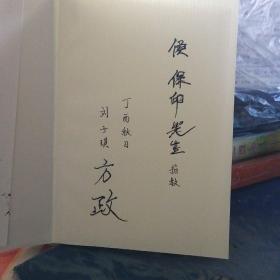 侯保印先生 指教
丁酉秋日
刘子琪 方政